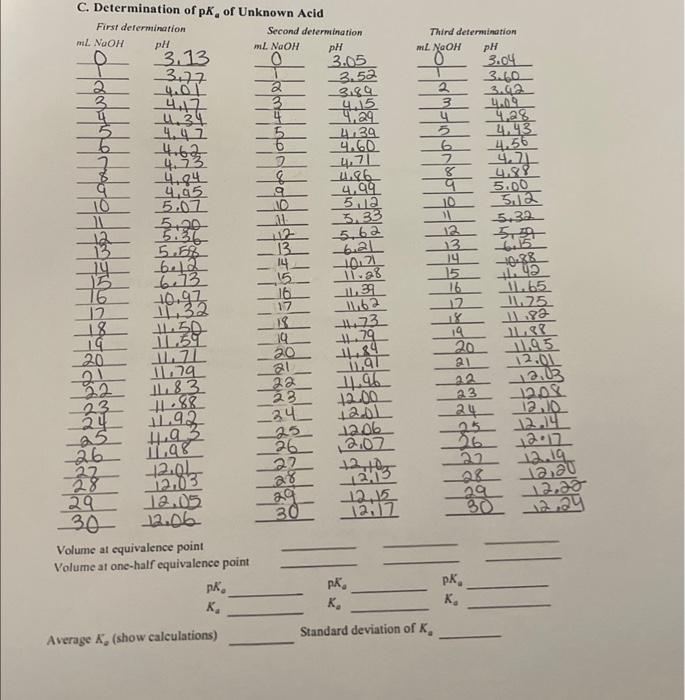 C. Determination of pKa of Unknown Acid
First determination Second determination Third determination
mL NaOH pH mL NaOH pH mL NaOH pH
0 3.13 0 3.05 0 3.04
1 3.77 1 3.52 1 3.60
2 4.01 2 3.89 2 3.92
3 4.17 3 4.15 3 4.09
4 4.34 4 4.29 4 4.28
5 4.47 5 4.39 5 4.43
6 4.62 6 4.60 6 4.56
7 4.73 7 4.71 7 4.71
8 4.84 8 4.86 8 4.88
9 4.95 9 4.99 9 5.00
10 5.07 10 5.12 10 5.12
11 5.20 11 5.33 11 5.32
12 5.36 12 5.62 12
13 5.58 13 6.21 13 6.15
14 6.12 14 10.71 14 10.88
15 6.73 15 11.28 15 11.42
16 10.97 16 11.39 16 11.65
17 11.32 17 11.62 17 11.75
18 11.50 18 11.73 18 11.82
19 11.59 19 11.79 19 11.88
20 11.71 20 11.84 20 11.95
21 11.79 21 11.91 21 12.01
22 11.83 22 11.96 22 12.03
23 11.88 23 12.00 23 12.08
24 11.92 24 12.01 24 12.10
25 11.93 25 12.06 25 12.14
26 11.98 26 12.07 26 12.17
27 12.01 27 12.10 27 12.19
28 12.03 28 12.13 28 12.20
29 12.05 29 12.15 29 12.22
30 12.06 30 12.17 30 12.24
Volume at equivalence point
Volume at one-half equivalence point
pKa pKa pKa
Ka Ka Ka
Average Ka (show calculations) Standard deviation of Ka